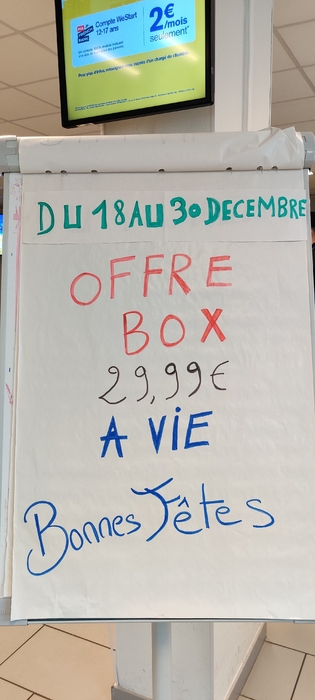 Compte WeStart
12-17 ans
2€
/mois
seulement*
DU 18 AU 30 DECEMBRE
OFFRE
BOX
29,99€
A ViE
Bonnes Fêtes